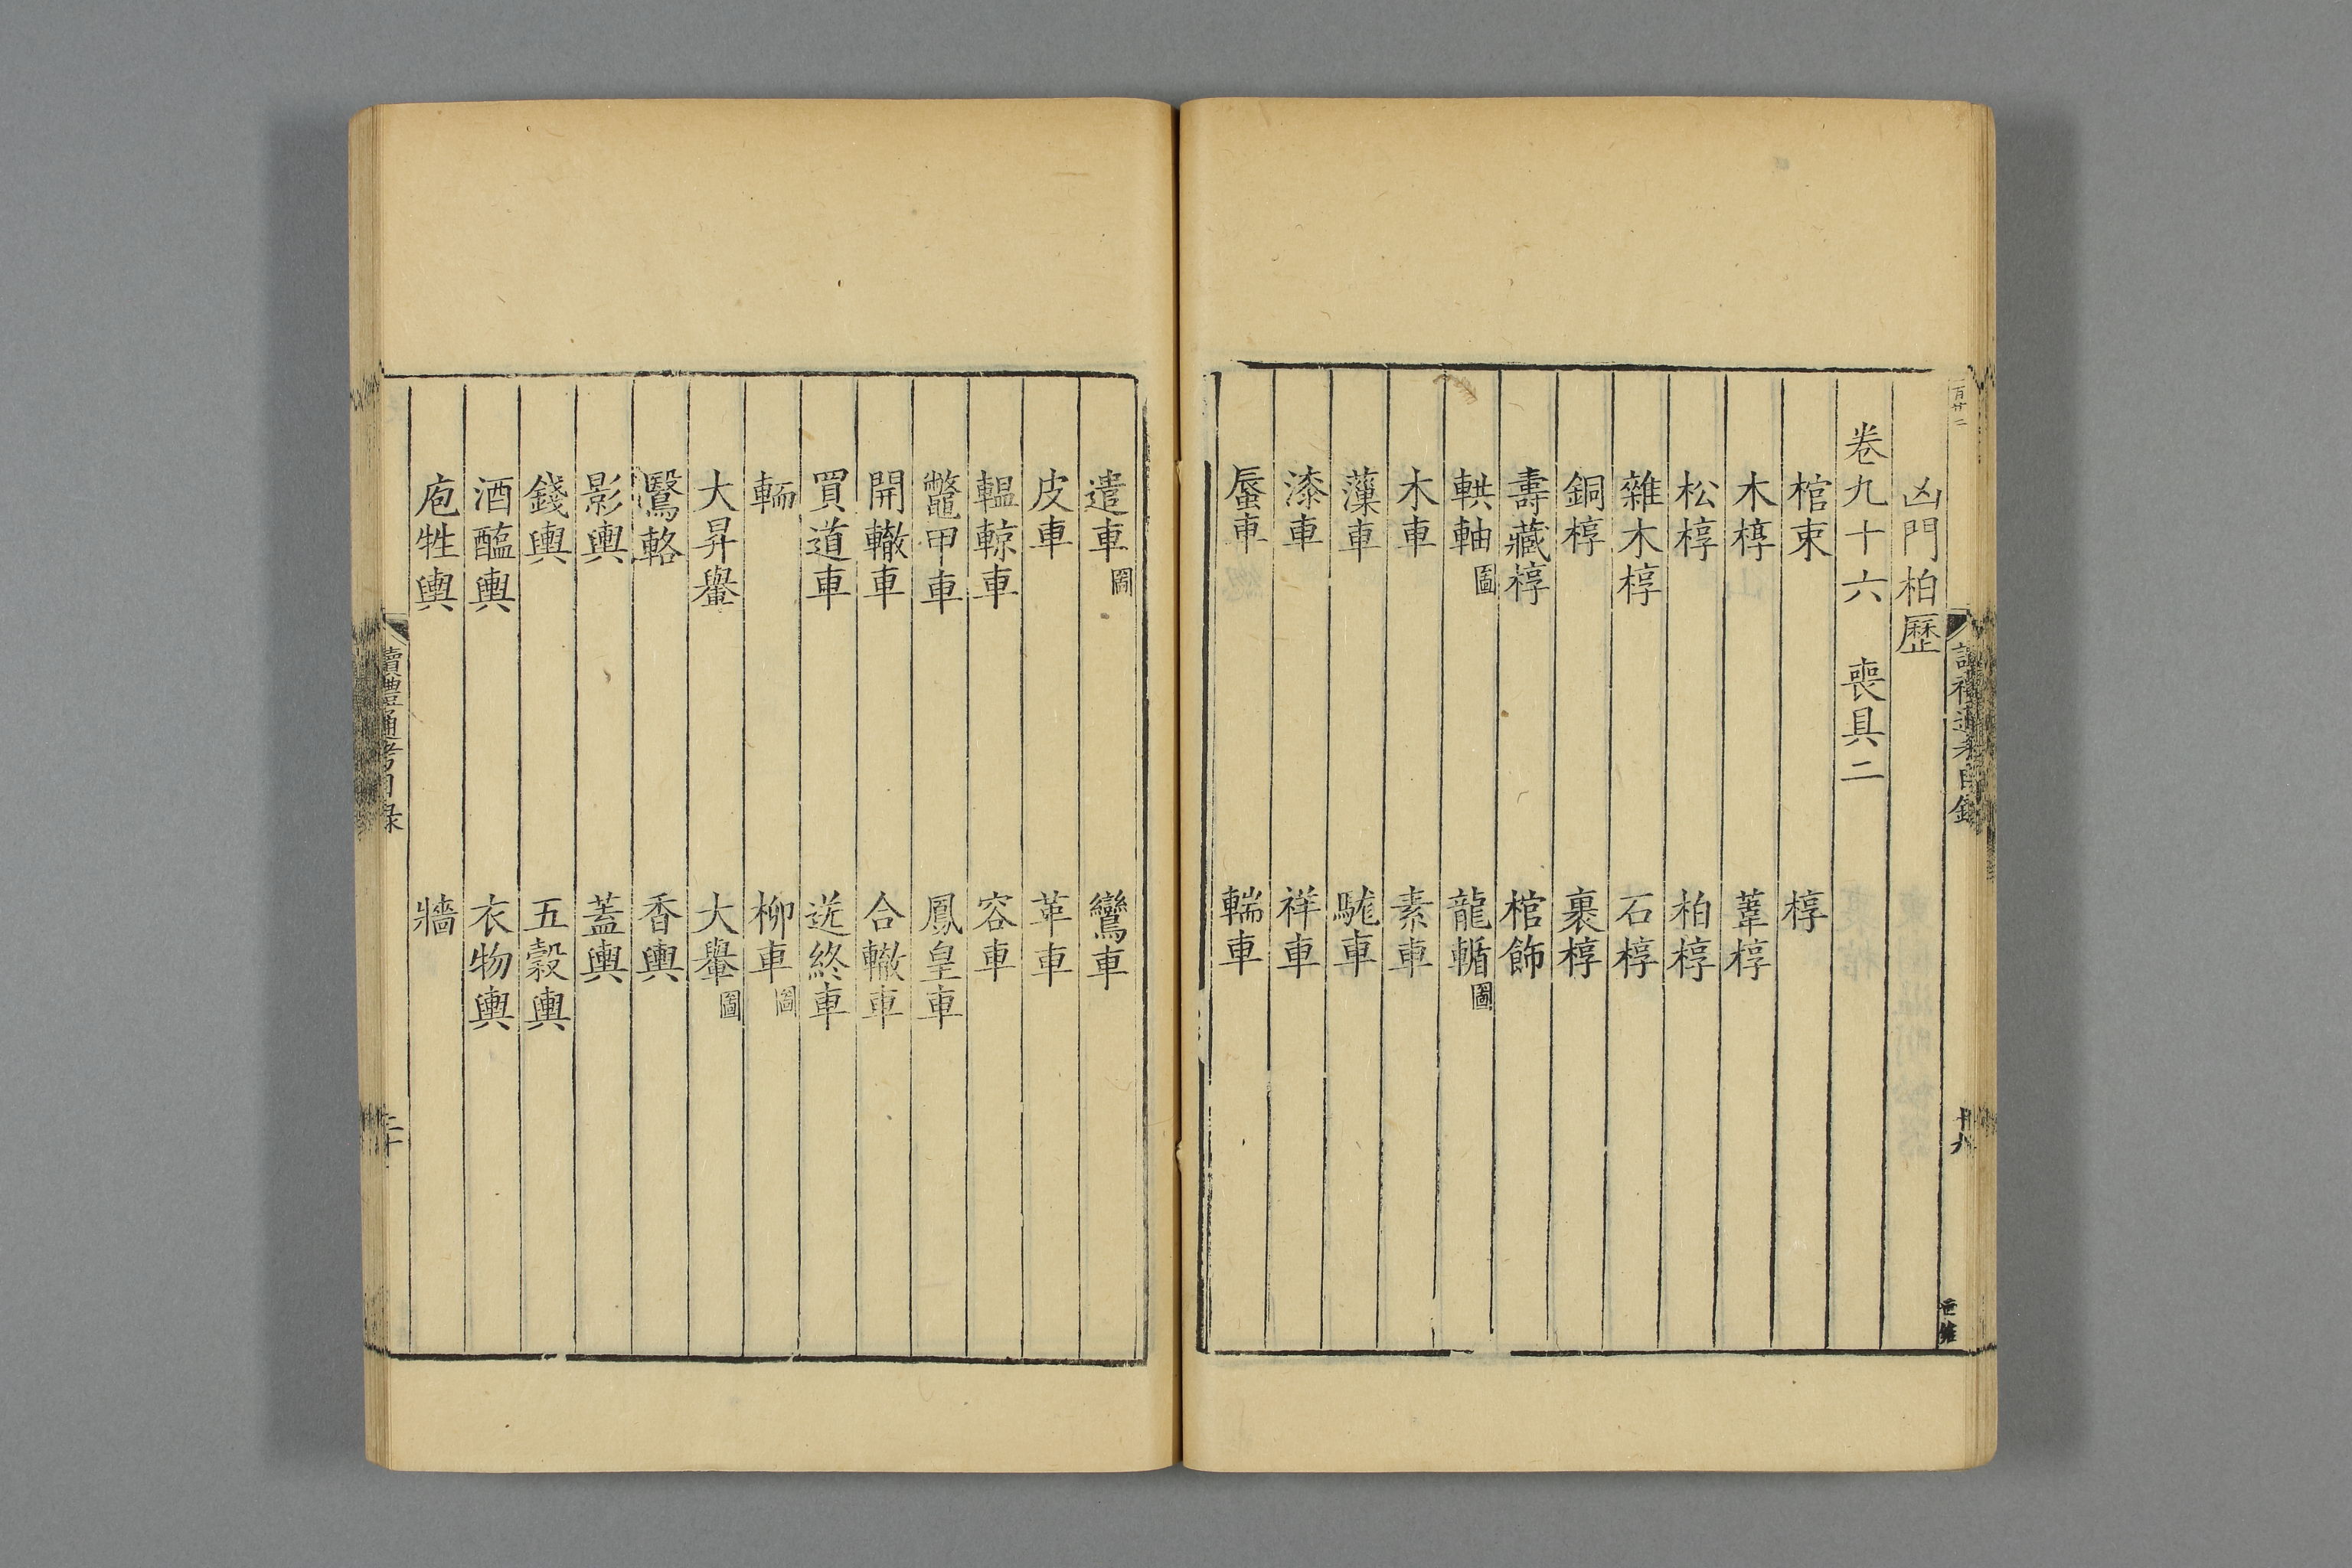 凶門柏歷
卷九十六　喪具二
棺束　椁
木椁　葦椁
松椁　柏椁
雜木椁　石椁
銅椁　裹椁
壽藏椁　棺飾
輁軸圖　龍輴圖
木車　素車
薻車　駹車
漆車　祥車
蜃車　輲車
遣車圖　鸞車
皮車　革車
輼輬車　容車
鼈甲車　鳳皇車
開轍車　合轍車
買道車　送終車
輀　柳車圖
大昇轝　大轝圖
鷖輅　香輿
影輿　蓋輿
錢輿　五穀輿
酒醢輿　衣物輿
庖牲輿　牆
讀禮通考目錄
二十